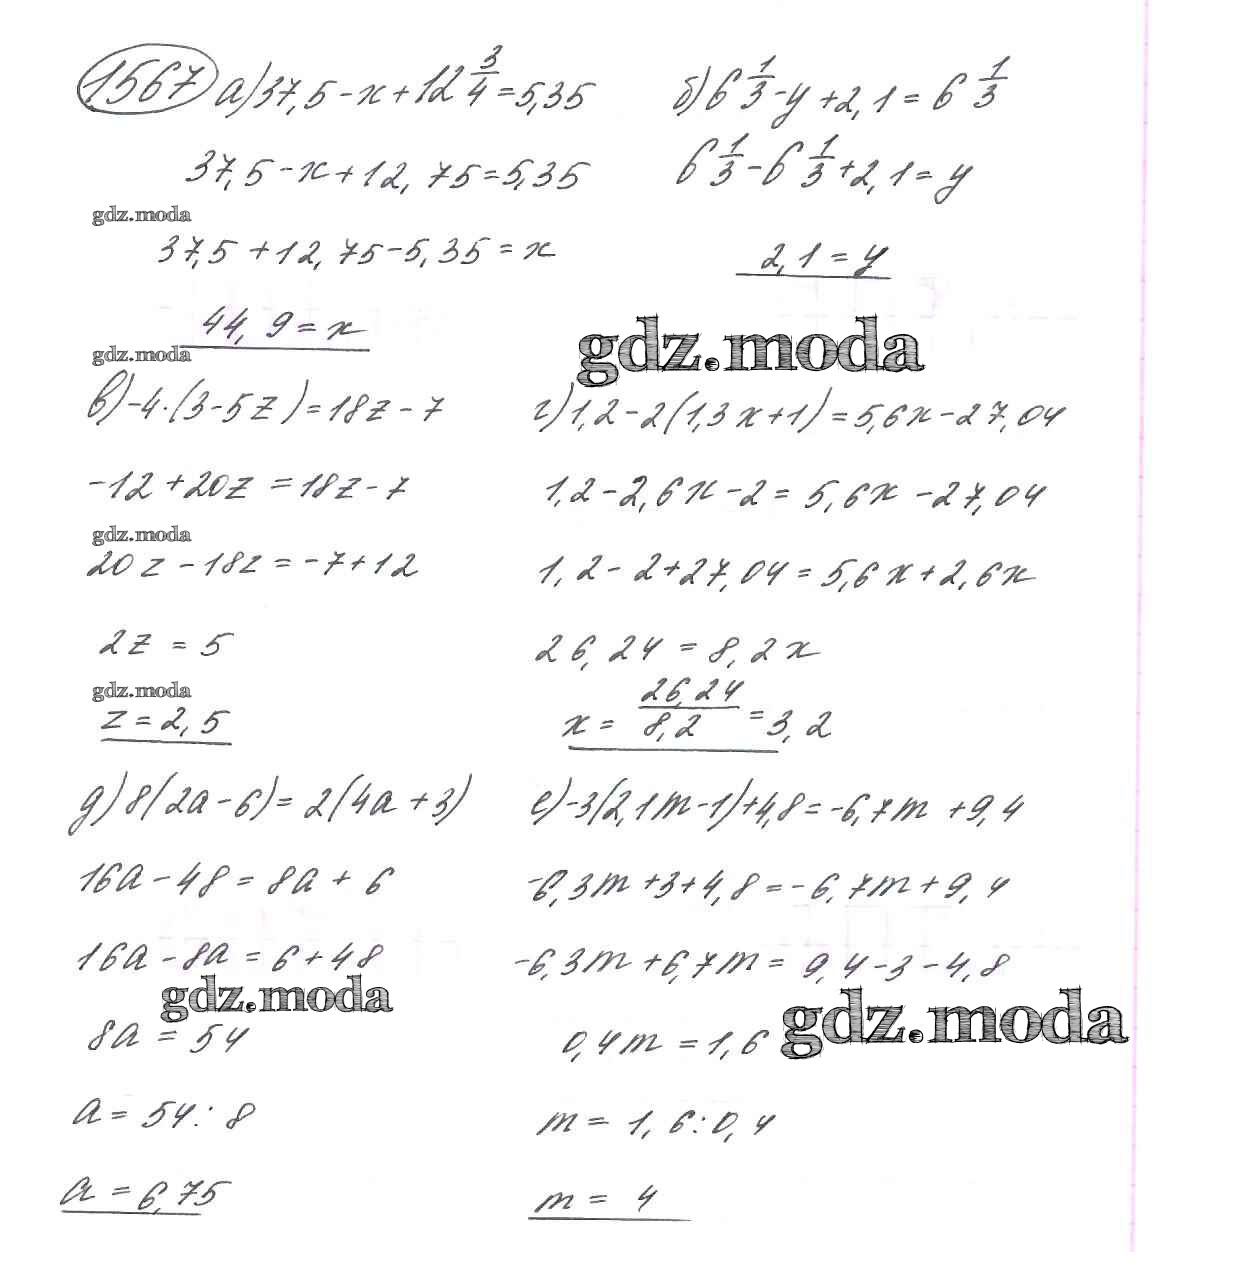 1567 а) 37,5 - x + 12 3/4 = 5,35
37,5 - x + 12,75 = 5,35
gdz.moda
37,5 + 12,75 - 5,35 = x
44,9 = x
gdz.moda
б) 6 1/3 - y + 2,1 = 6 1/3
6 1/3 - 6 1/3 + 2,1 = y
2,1 = y
gdz.moda
в) -4·(3-5z) = 18z - 7
-12 + 20z = 18z - 7
gdz.moda
20z - 18z = -7 + 12
2z = 5
gdz.moda
z = 2,5
г) 1,2 - 2(1,3x+1) = 5,6x - 27,04
1,2 - 2,6x - 2 = 5,6x - 27,04
1,2 - 2 + 27,04 = 5,6x + 2,6x
26,24 = 8,2x
x = 26,24/8,2 = 3,2
д) 8(2a-6) = 2(4a+3)
16a - 48 = 8a + 6
16a - 8a = 6 + 48
gdz.moda
8a = 54
a = 54 : 8
a = 6,75
е) -3(2,1m-1)+4,8 = -6,7m + 9,4
-6,3m + 3 + 4,8 = -6,7m + 9,4
-6,3m + 6,7m = 9,4 - 3 - 4,8
gdz.moda
0,4m = 1,6
m = 1,6 : 0,4
m = 4